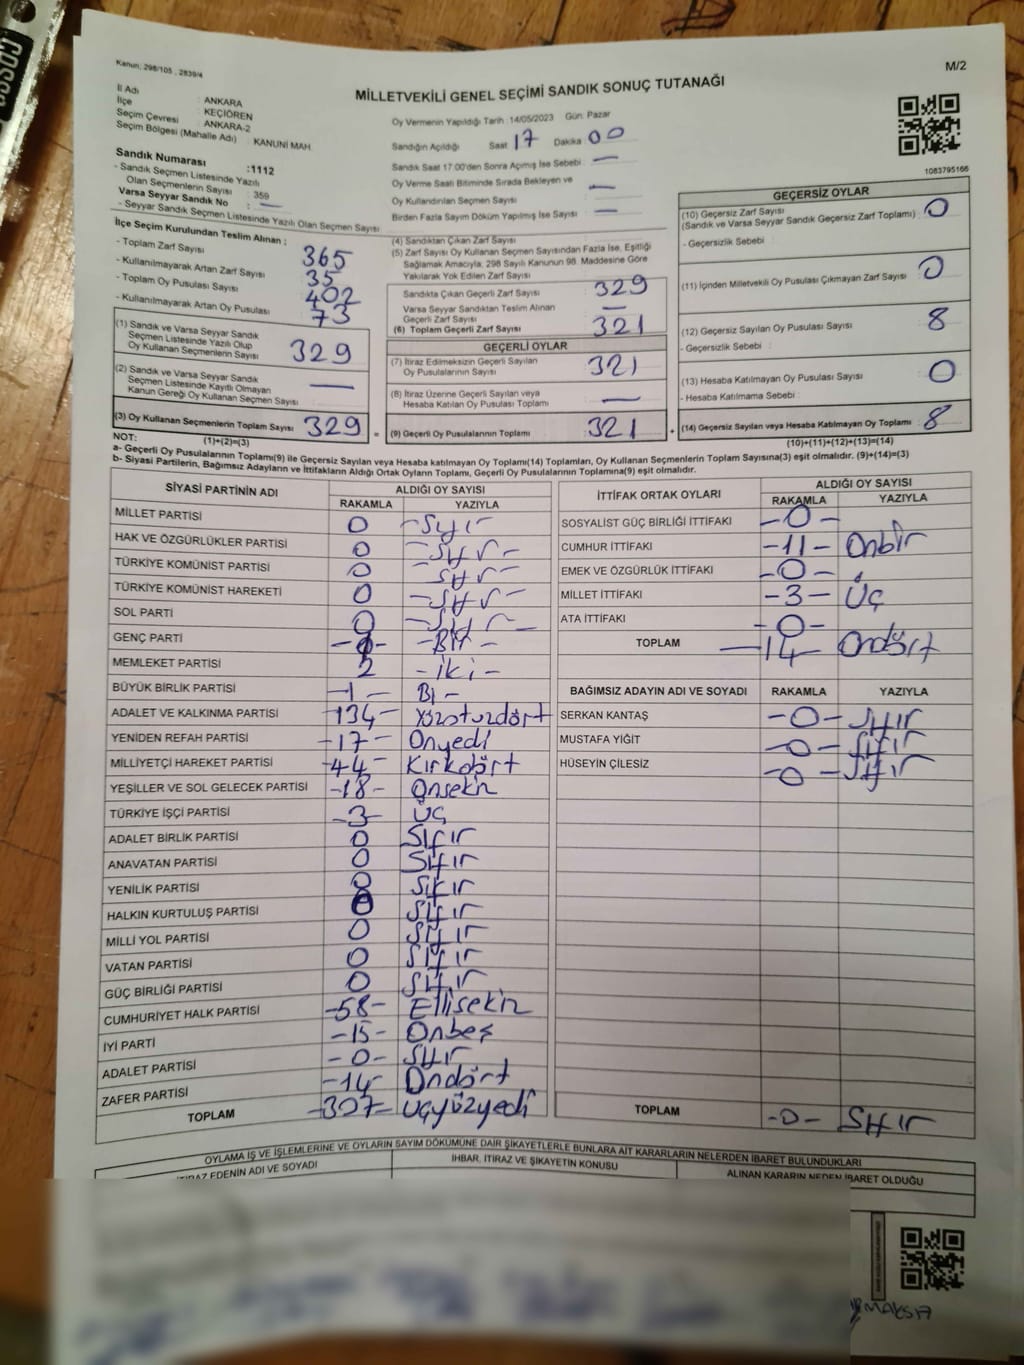 COSSO
Kanun; 298/105 , 2839/4
M/2
MİLLETVEKİLİ GENEL SEÇİMİ SANDIK SONUÇ TUTANAĞI
İl Adı : ANKARA
İlçe : KEÇİÖREN
Seçim Çevresi : ANKARA-2
Seçim Bölgesi (Mahalle Adı) : KANUNİ MAH
Sandık Numarası :1112
- Sandık Seçmen Listesinde Yazılı
Olan Seçmenlerin Sayısı : 359
Varsa Seyyar Sandık No : —
- Seyyar Sandık Seçmen Listesinde Yazılı Olan Seçmen Sayısı
Oy Vermenin Yapıldığı Tarih :14/05/2023 Gün: Pazar
Sandığın Açıldığı Saat 17 Dakika : 00
Sandık Saat 17.00'den Sonra Açımış İse Sebebi : —
Oy Verme Saati Bitiminde Sırada Bekleyen ve
Oy Kullandırılan Seçmen Sayısı : —
Birden Fazla Sayım Döküm Yapılmış İse Sayısı : —
1083795166
İlçe Seçim Kurulundan Teslim Alınan ;
- Toplam Zarf Sayısı : 365
- Kullanılmayarak Artan Zarf Sayısı : 35
- Toplam Oy Pusulası Sayısı : 402
- Kullanılmayarak Artan Oy Pusulası : 73
(1) Sandık ve Varsa Seyyar Sandık
Seçmen Listesinde Yazılı Olup
Oy Kullanan Seçmenlerin Sayısı : 329
(2) Sandık ve Varsa Seyyar Sandık
Seçmen Listesinde Kayıtlı Olmayan
Kanun Gereği Oy Kullanan Seçmen Sayısı : —
(3) Oy Kullanan Seçmenlerin Toplam Sayısı : 329 =
(1)+(2)=(3)
(4) Sandıktan Çıkan Zarf Sayısı
(5) Zarf Sayısı Oy Kullanan Seçmen Sayısından Fazla İse, Eşitliği
Sağlamak Amacıyla, 298 Sayılı Kanunun 98. Maddesine Göre
Yakılarak Yok Edilen Zarf Sayısı
Sandıkta Çıkan Geçerli Zarf Sayısı : 329
Varsa Seyyar Sandıktan Teslim Alınan
Geçerli Zarf Sayısı : —
(6) Toplam Geçerli Zarf Sayısı : 321
GEÇERLİ OYLAR
(7) İtiraz Edilmeksizin Geçerli Sayılan
Oy Pusulalarının Sayısı : 321
(8) İtiraz Üzerine Geçerli Sayılan veya
Hesaba Katılan Oy Pusulası Toplamı : —
(9) Geçerli Oy Pusulalarının Toplamı : 321 +
GEÇERSİZ OYLAR
(10) Geçersiz Zarf Sayısı
(Sandık ve Varsa Seyyar Sandık Geçersiz Zarf Toplamı) : 0
- Geçersizlik Sebebi :
(11) İçinden Milletvekili Oy Pusulası Çıkmayan Zarf Sayısı : 0
(12) Geçersiz Sayılan Oy Pusulası Sayısı : 8
- Geçersizlik Sebebi :
(13) Hesaba Katılmayan Oy Pusulası Sayısı : 0
- Hesaba Katılmama Sebebi :
(14) Geçersiz Sayılan veya Hesaba Katılmayan Oy Toplamı : 8
(10)+(11)+(12)+(13)=(14)
NOT:
a- Geçerli Oy Pusulalarının Toplamı(9) ile Geçersiz Sayılan veya Hesaba katılmayan Oy Toplamı(14) Toplamları, Oy Kullanan Seçmenlerin Toplam Sayısına(3) eşit olmalıdır. (9)+(14)=(3)
b- Siyasi Partilerin, Bağımsız Adayların ve İttifakların Aldığı Ortak Oyların Toplamı, Geçerli Oy Pusulalarının Toplamına(9) eşit olmalıdır.
SİYASİ PARTİNİN ADI ALDIĞI OY SAYISI
RAKAMLA YAZIYLA
MİLLET PARTİSİ 0 -Sıfır
HAK VE ÖZGÜRLÜKLER PARTİSİ 0 -Sıfır-
TÜRKİYE KOMÜNİST PARTİSİ 0 -Sıfır-
TÜRKİYE KOMÜNİST HAREKETİ 0 -Sıfır-
SOL PARTİ 0 -Sıfır-
GENÇ PARTİ -1- -Bir-
MEMLEKET PARTİSİ 2 -iki-
BÜYÜK BİRLİK PARTİSİ -1- Bı-
ADALET VE KALKINMA PARTİSİ -134- Yüzotuzdört
YENİDEN REFAH PARTİSİ -17- Onyedi
MİLLİYETÇİ HAREKET PARTİSİ -44- Kırkdört
YEŞİLLER VE SOL GELECEK PARTİSİ -18- Onsekiz
TÜRKİYE İŞÇİ PARTİSİ -3- Üç
ADALET BİRLİK PARTİSİ 0 Sıfır
ANAVATAN PARTİSİ 0 Sıfır
YENİLİK PARTİSİ 0 Sıfır
HALKIN KURTULUŞ PARTİSİ 0 Sıfır
MİLLİ YOL PARTİSİ 0 Sıfır
VATAN PARTİSİ 0 Sıfır
GÜÇ BİRLİĞİ PARTİSİ 0 Sıfır
CUMHURİYET HALK PARTİSİ -58- Ellisekiz
İYİ PARTİ -15- Onbeş
ADALET PARTİSİ -0- Sıfır
ZAFER PARTİSİ -14- Ondört
TOPLAM -307- üçyüzyedi
İTTİFAK ORTAK OYLARI ALDIĞI OY SAYISI
RAKAMLA YAZIYLA
SOSYALİST GÜÇ BİRLİĞİ İTTİFAKI -0-
CUMHUR İTTİFAKI -11- Onbir
EMEK VE ÖZGÜRLÜK İTTİFAKI -0-
MİLLET İTTİFAKI -3- Üç
ATA İTTİFAKI -0-
TOPLAM -14 Ondört
BAĞIMSIZ ADAYIN ADI VE SOYADI RAKAMLA YAZIYLA
SERKAN KANTAŞ -0- Sıfır
MUSTAFA YİĞİT -0- Sıfır
HÜSEYİN ÇİLESİZ -0- Sıfır
TOPLAM -0- Sıfır
OYLAMA İŞ VE İŞLEMLERİNE VE OYLARIN SAYIM DÖKÜMÜNE DAİR ŞİKAYETLERLE BUNLARA AİT KARARLARIN NELERDEN İBARET BULUNDUKLARI
İTİRAZ EDENİN ADI VE SOYADI İHBAR, İTİRAZ VE ŞİKAYETİN KONUSU ALINAN KARARIN NEDEN İBARET OLDUĞU